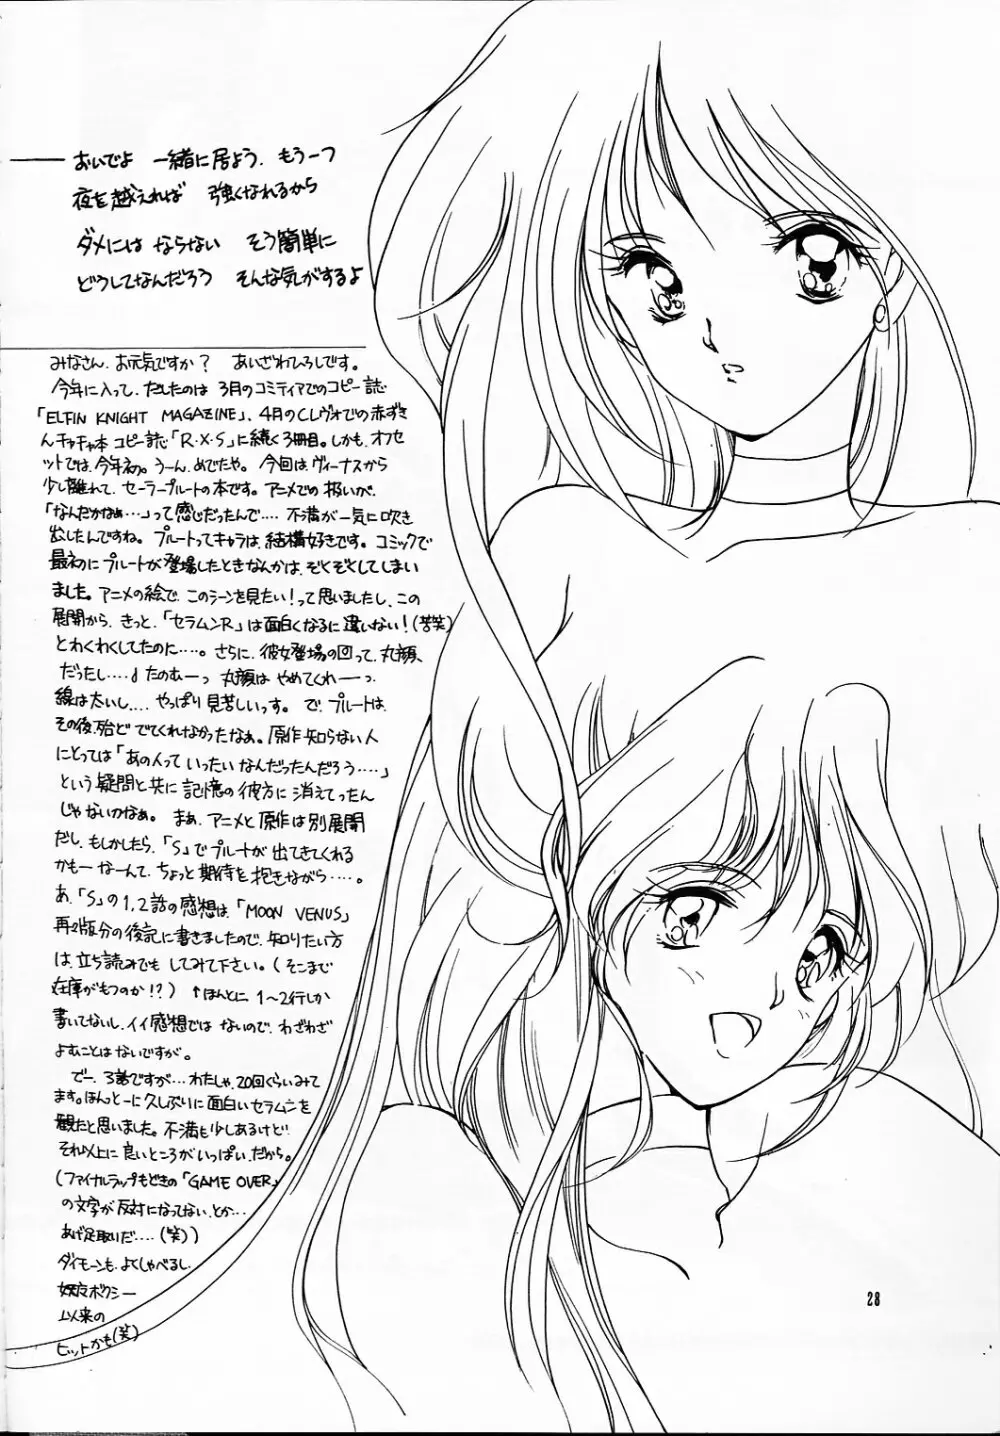 おいでよ 一緒に居よう. もう一つ
夜を越えれば 強くなれるから
ダメには ならない そう簡単に
どうしてなんだろう そんな気がするよ
みなさん、お元気ですか? あいざわひろしです。
今年に入って、だしたのは 3月のコミティアでのコピー誌
「ELFIN KNIGHT MAGAZINE」、4月のCレヴォでの赤ずき
んチャチャ本 コピー誌「R・X・S」に続く3冊目。しかも、オフセ
ットでは、今年初。うーん、めでたや。今回は、ヴィーナスから
少し離れて、セーラープルートの本です。アニメでの扱いが、
「なんだかなぁ…」って感じだったんで…. 不満が一気に吹き
出したんですね。プルートってキャラは、結構好きです。コミックで
最初にプルートが登場したときなんかは、ぞくぞくとしてしまい
ました。アニメの絵で、このシーンを見たい!って思いましたし、この
展開から、きっと、「セラムンR」は面白くなるに違いない!(苦笑)
とわくわくしてたのに….。さらに、彼女登場の回って、丸顔、
だったし….♪たのむーっ 丸顔は やめてくれーっ.
線は太いし…. やっぱり見苦しいっす。で、プルートは、
その後、殆ど でてくれなかったなぁ。原作知らない人
にとっては「あの人って いったい なんだったんだろう….」
という疑問と共に 記憶の彼方に 消えてったん
じゃないのかなぁ。まぁ、アニメと原作は別展開
だし、もしかしたら、「S」でプルートが出てきてくれる
かもーなーんて、ちょっと期待を抱きながら….。
あ、「S」の1,2話の感想は、「MOON VENUS」
再版分の後記に書きましたので、知りたい方
は、立ち読みでも してみて下さい。(そこまで
在庫がもつのか!?) ↑ほんとに、1〜2行しか
書いてないし、イイ感想では ないので、わざわざ
よむことはないですが。
でー、3話ですが…わたしゃ、20回くらいみて
ます。ほんっとーに久しぶりに面白いセラムンを
観たと思いました。不満も少しあるけど、
それ以上に良いところがいっぱい、だから。
(ファイナルラップもどきの「GAME OVER」
の文字が反対になってない、とか…
あげ足取りだ….(笑))
ダイモーンも、よくしゃべるし、
妖魔ボクシー
以来の
ヒットかも(笑)
28